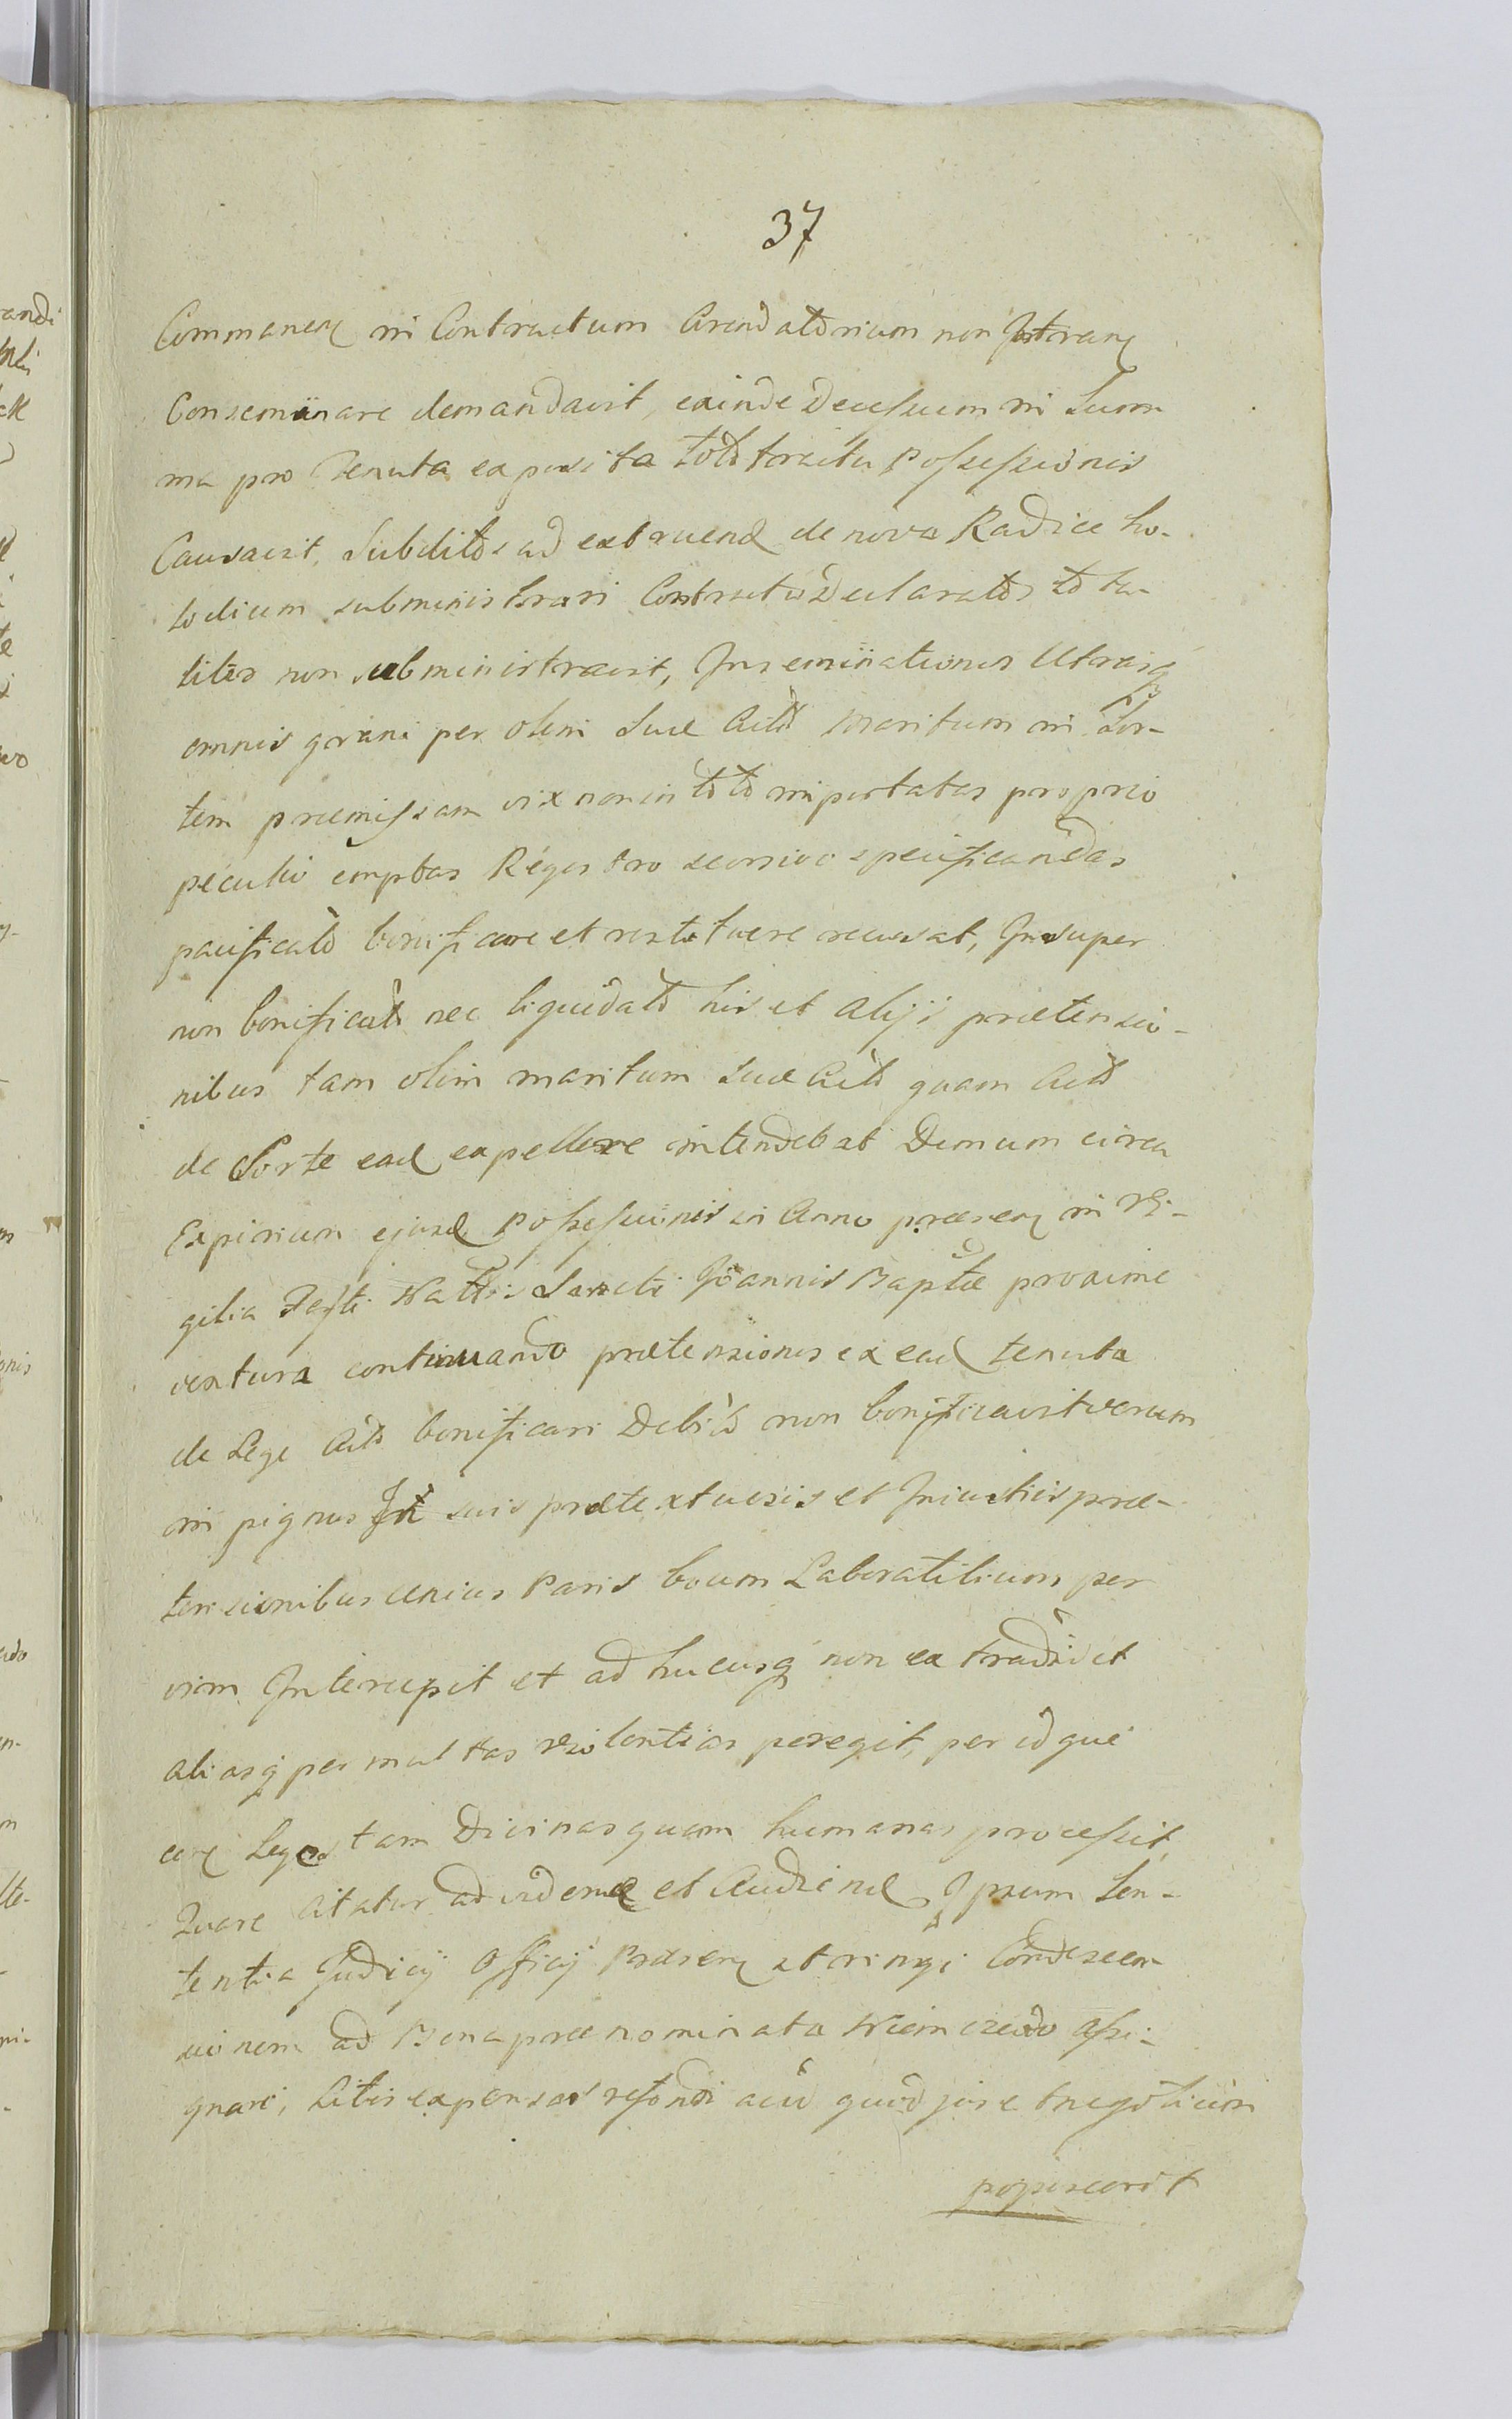 37
Commanen in Contractum Arendatorium non Intrans
Conseminare demandavit, exinde Decessum in Sum
ma pro Tenuta exposita toto tractu Possessionis
Causavit, Subditos ad extruend de nova Radice ho-
lodium subministrari Contractu Declaratos to ta-
liter non subministravit, Inseminationes Utrasq
omnis grani per olim Suae Actd Maritum in Sor-
tem praemissam vix non in toto importatas proprio
peculio emptas Regestro seorsivo specificandas
pacificato bonificare et restituere recusat, Insuper
non bonificatis nec liquidatis his et alijs praetensio-
nibus tam olim maritum Suae Actd quam Actd
de Sorte ead expellere intendebat Demum circa
Expirium ejusd Possessionis in Anno praesen in Vi-
gilia Festi Nattis Sancti Joannis Baptae proxime
ventura continuando praetensiones ex ead tenuta
de Lege Actd bonificari Debitas non bonificavit verum
in pignus suis praetextuosis et Iniustis prae-
tensionibus unius Paris boum Laboratilium per
vim Intercepit et ad hucusq non extradidit
aliasq per multas violentias peregit, per idque
con Leges tam Divinas quam humanas processit,
Quare citatur ad vidend et Audiend Ipsum Sen-
tentia Judicij Officij Praesen stringi Condescen-
sionem ad Bona praenominata assi-
gnari, Litis expensas refondi acui quod jus et negotium
poposcerit